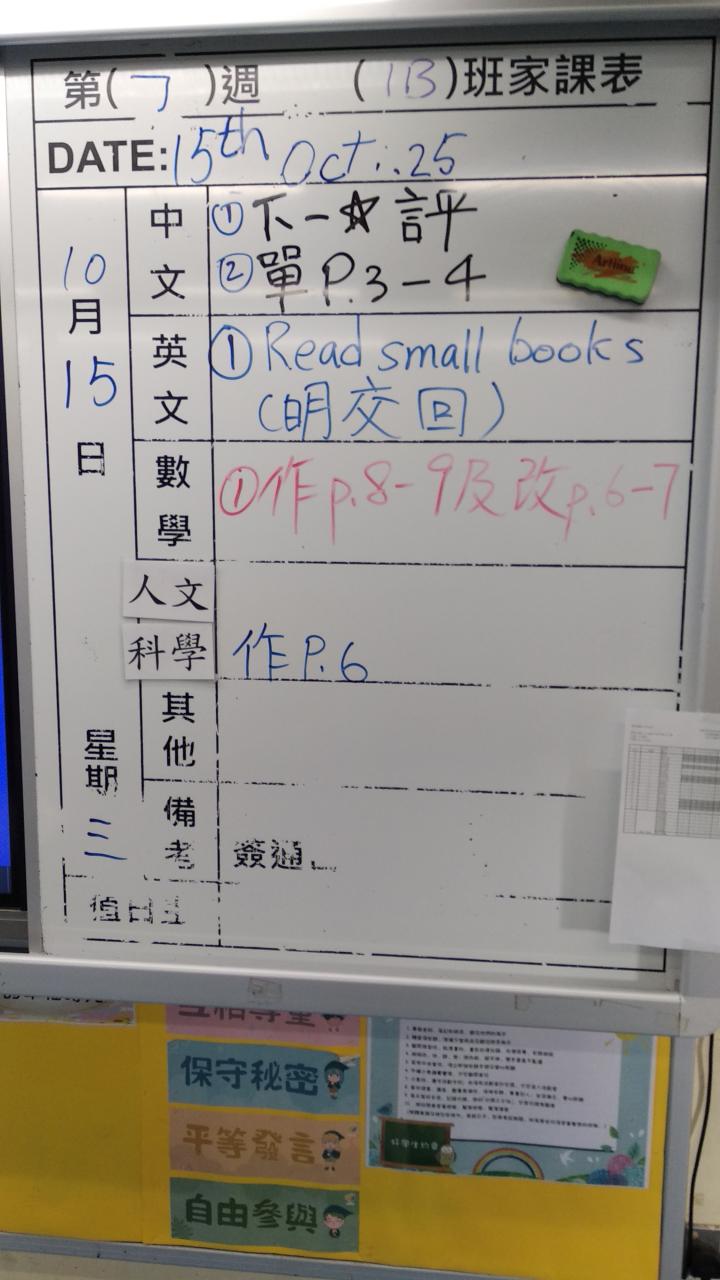 第(7)週 (1B)班家課表
DATE: 15th Oct. 25
10月15日
星期三
中文
①下一☆評
②單P.3-4
英文
①Read small books
(明交回)
數學
①作p.8-9及改p.6-7
人文
科學
作P.6
其他
備考
簽通
值日生
Artline
互相尊重
保守秘密
平等發言
自由參與
好學生約章